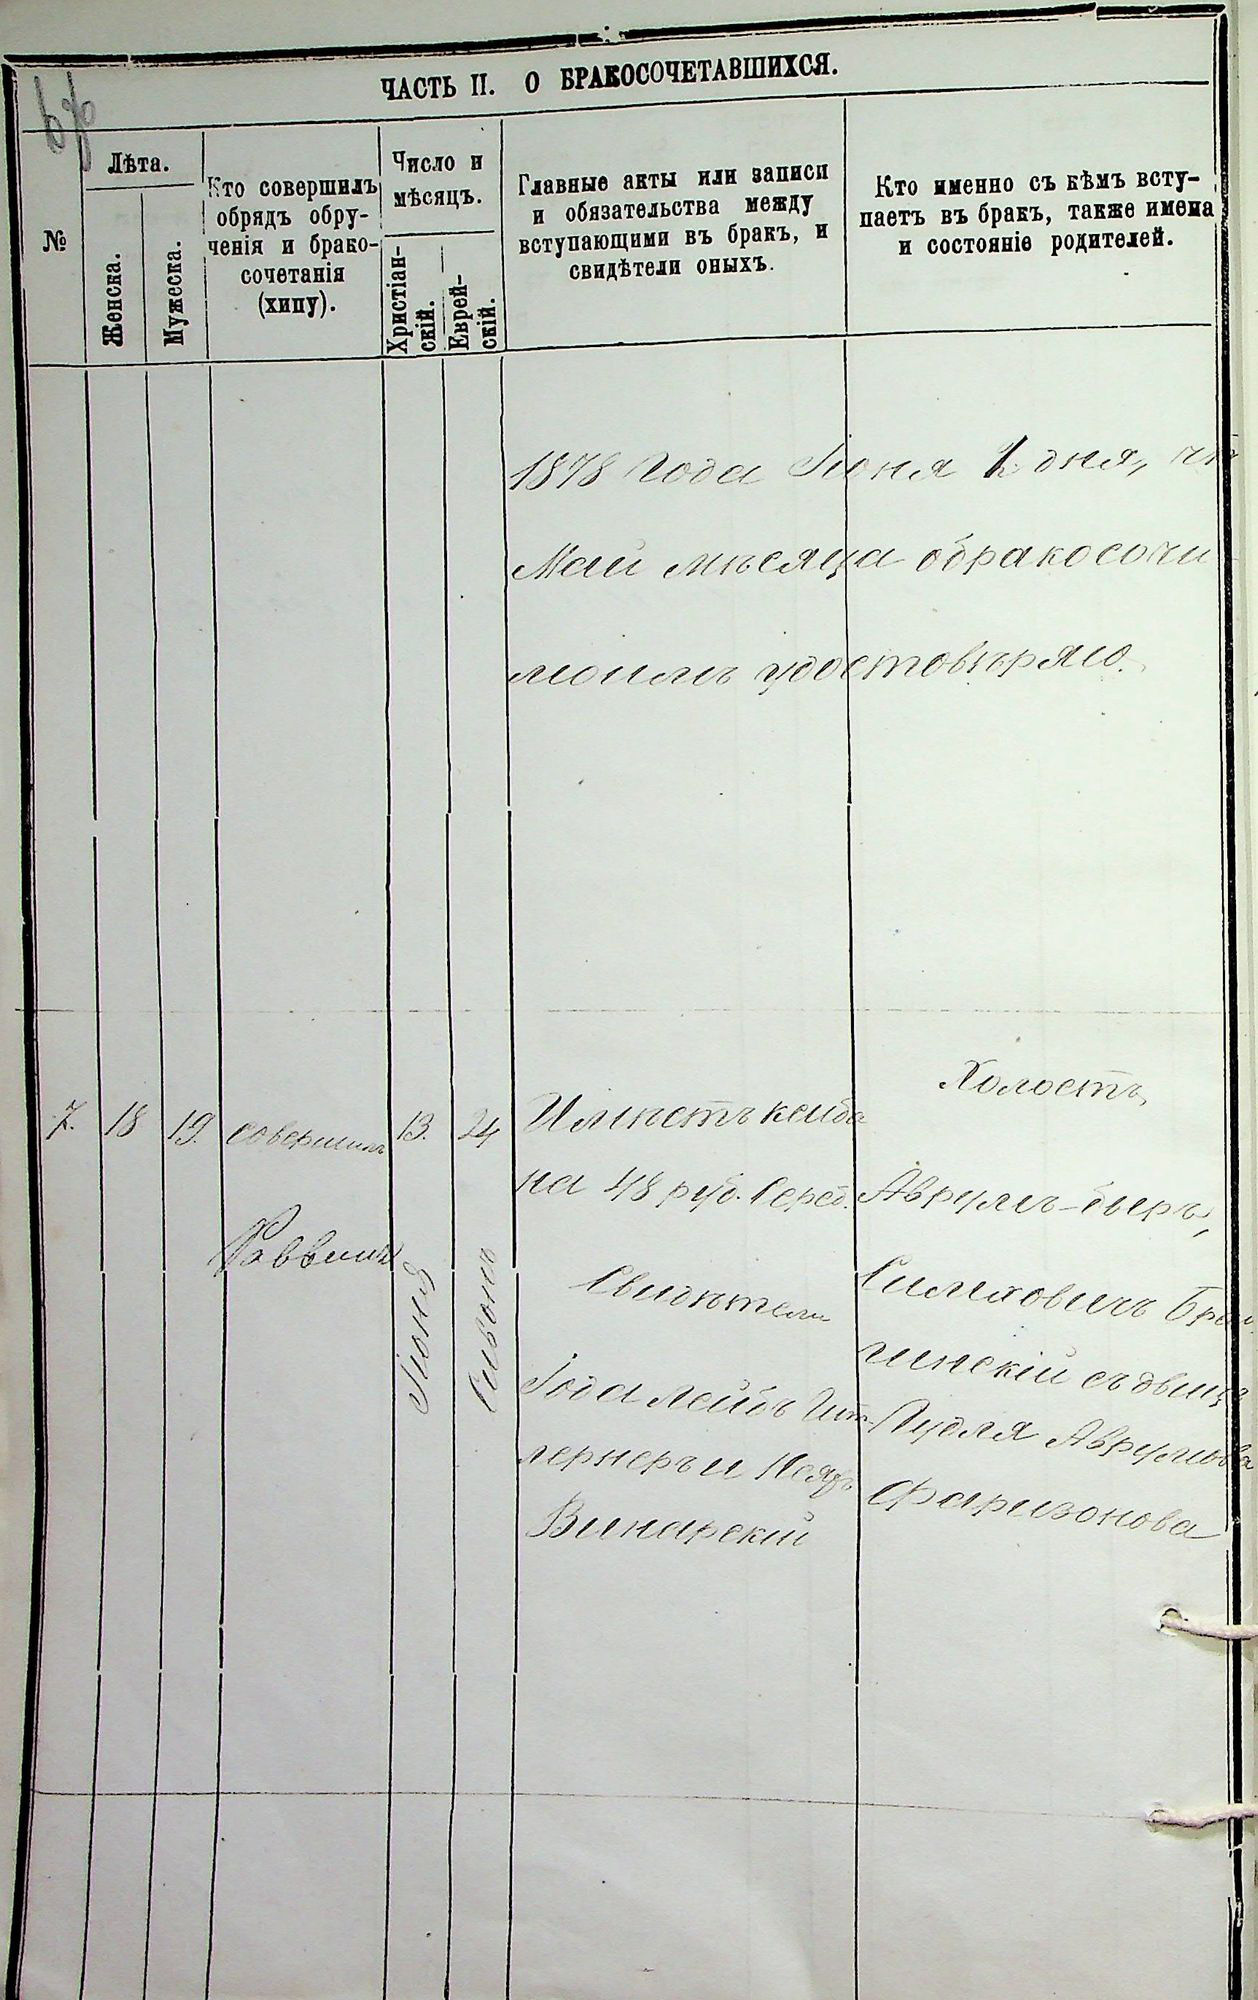 ЧАСТЬ II. О БРАКОСОЧЕТАВШИХСЯ.
№
Лѣта.
Женска.
Мужеска.
Кто совершилъ
обрядъ обру-
ченія и брако-
сочетанія
(хипу).
Число и
мѣсяцъ.
Христіан-
скій.
Еврей-
скій.
Главные акты или записи
и обязательства между
вступающими въ бракъ, и
свидѣтели оныхъ.
Кто именно съ кѣмъ всту-
паетъ въ бракъ, также имена
и состояніе родителей.
1878 года Іюня 1 дня,
Май мѣсяца обракосочи
моимъ удостовѣряю.
7.
18
19.
совершилъ
Раввинъ
13.
Іюня
24
Сивонъ
Имѣетъ ксиба
на 48 руб. Сереб.
Свидѣтели
Іода Лейбъ Шт-
лернеръ и
Винарскій
Холостъ,
Аврумъ-беръ,
Симховичъ
гинскій съ двице
Пудля Аврумова
Фаризонова